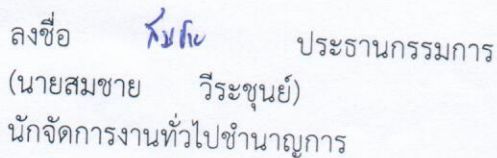 ลงชื่อ สมชาย ประธานกรรมการ
(นายสมชาย วีระชุนย์)
นักจัดการงานทั่วไปชำนาญการ